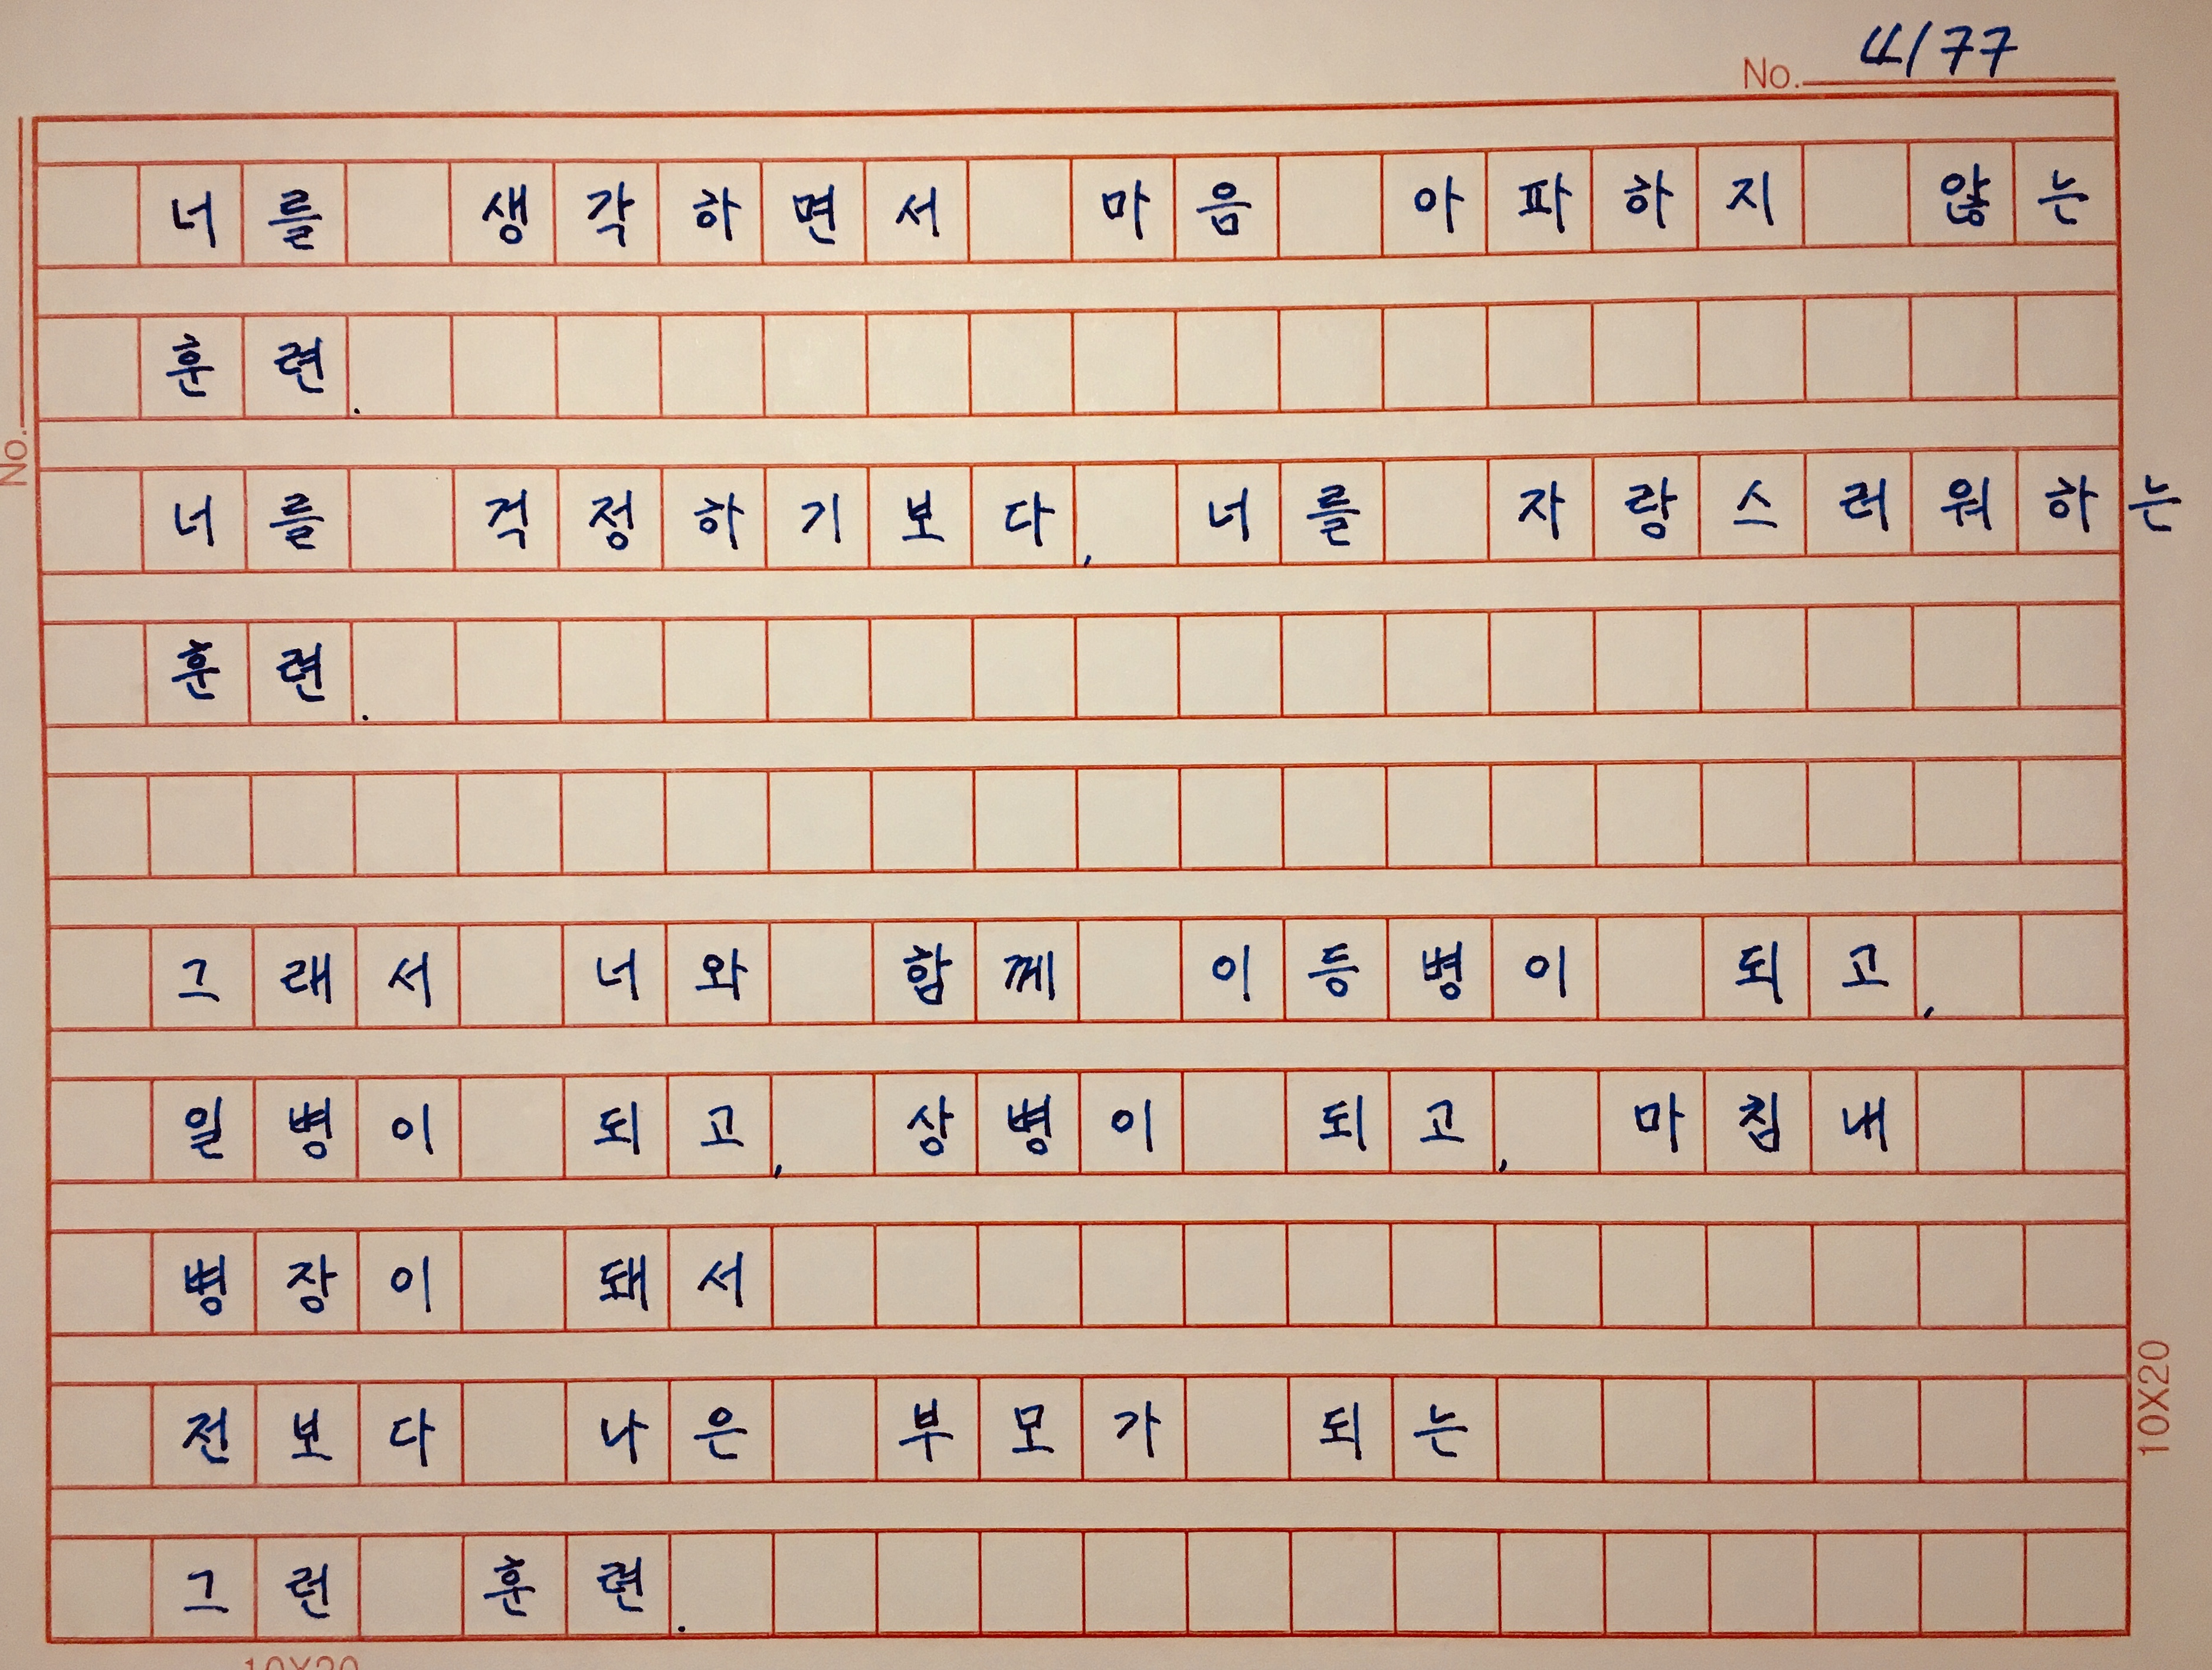 No. 4/77
너를 생각하면서 마음 아파하지 않는
훈련.
No.
너를 걱정하기보다, 너를 자랑스러워하는
훈련.
그래서 너와 함께 이등병이 되고,
일병이 되고, 상병이 되고, 마침내
병장이 돼서
전보다 나은 부모가 되는
10X20
그런 훈련.
10X20